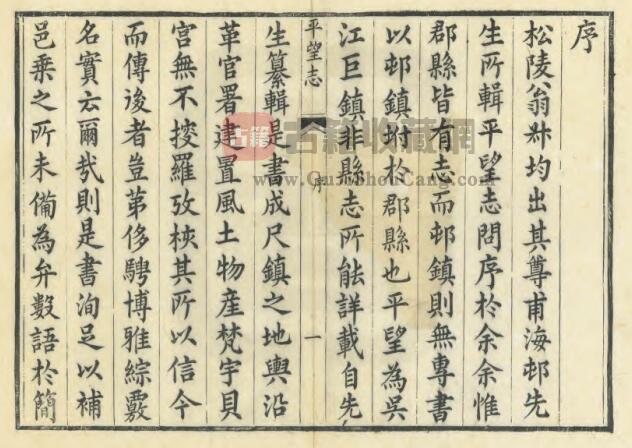 序
松陵翁叔均出其尊甫海邨先
生所輯平望志問序於余余惟
郡縣皆有志而邨鎮則無專書
以邨鎮坿於郡縣也平望為吳
江巨鎮非縣志所能詳載自先
平望志
序
一
生纂輯是書成尺鎮之地輿沿
革官署建置風土物産梵宇貝
宫無不搜羅攷核其所以信今
而傳後者豈苐侈騁博雅綜覈
名實云爾㢤則是書洵足以補
邑乗之所未備為弁數語於簡
古籍
古籍收藏網
www.GujiShouCang.com